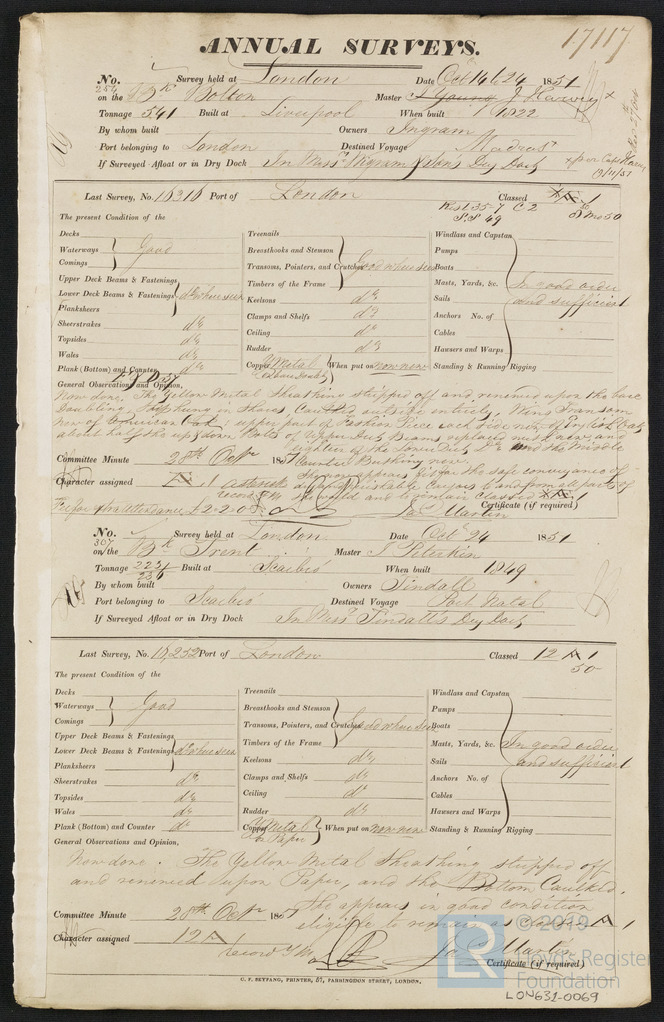 17117
ANNUAL SURVEYS.
No. 254 Survey held at London Date Oct 14 & 24 1851
on the Bk Bolton Master J Young J Harvey x
Tonnage 541 Built at Liverpool When built 1822
By whom built Owners Ingram
Port belonging to London Destined Voyage Madras
If Surveyed Afloat or in Dry Dock In Messrs Wigram & Sons Dry Dock
Last Survey, No. 16316 Port of London Classed Æ 1
Rest. 35-7 C 2 50
S.S 49
The present Condition of the
Decks
Waterways } Good
Comings
Upper Deck Beams & Fastenings
Lower Deck Beams & Fastenings } do where seen
Planksheers
Sheerstrakes do
Topsides do
Wales do
Plank (Bottom) and Counter
Treenails
Breasthooks and Stemson
Transoms, Pointers, and Crutches } Good where seen
Timbers of the Frame
Keelsons do
Clamps and Shelfs do
Ceiling do
Rudder do
Copper Y Metal When put on now new
Windlass and Capstan
Pumps
Boats
Masts, Yards, &c. In good order
Sails and sufficient
Anchors No. of
Cables
Hawsers and Warps
Standing & Running Rigging
General Observations and Opinion,
Now done. The Yellow Metal Sheathing stripped off and renewed upon the
doubling, Ship hung in Shores, Caulked outside entirely, Wing Transom
new of ; upper part of Fashion Piece each side new of English Oak
about half the up & down Bolts of Upper Deck Beams replaced with new, and
eighteen of the Lower Deck Do and the Middle
Committee Minute 28th Octr 1851 Counter Buttning new
the safe conveyance of
Character assigned Æ 1 asterisk Cargoes to and from all parts of
record YM the world and to remain classed Æ 1
Fee for attendance £2-2-0 Jas Martin Certificate (if required)
No. 307 Survey held at London Date Octr 24 1851
on the Bk Trent Master J Peterkin
Tonnage 223/236 Built at Scarbro' When built 1849
By whom built Owners Tindall
Port belonging to Scarbro' Destined Voyage Port Natal
If Surveyed Afloat or in Dry Dock In Messrs Tindall's Dry Dock
Last Survey, No. 16,252 Port of London Classed 12 A 1
50
The present Condition of the
Decks
Waterways } Good
Comings
Upper Deck Beams & Fastenings
Lower Deck Beams & Fastenings } do where seen
Planksheers
Sheerstrakes do
Topsides do
Wales do
Plank (Bottom) and Counter do
Treenails
Breasthooks and Stemson
Transoms, Pointers, and Crutches } Good where seen
Timbers of the Frame
Keelsons do
Clamps and Shelfs do
Ceiling do
Rudder do
Copper Y Metal on Paper When put on now new
Windlass and Capstan
Pumps
Boats
Masts, Yards, &c. In good order
Sails and sufficient
Anchors No. of
Cables
Hawsers and Warps
Standing & Running Rigging
General Observations and Opinion,
Now done. The Yellow Metal Sheathing stripped off
and renewed upon Paper, and the Bottom Caulked.
She appears in good condition
Committee Minute 28th Octr 1851 eligible to remain as classed A 1
Character assigned 12 A 1
record YM Jas Martin
Certificate (if required)
C. F. SEYFANG, PRINTER, 57, FARRINGDON STREET, LONDON.
© 2019
LR Lloyd's Register
Foundation
LON631-0069